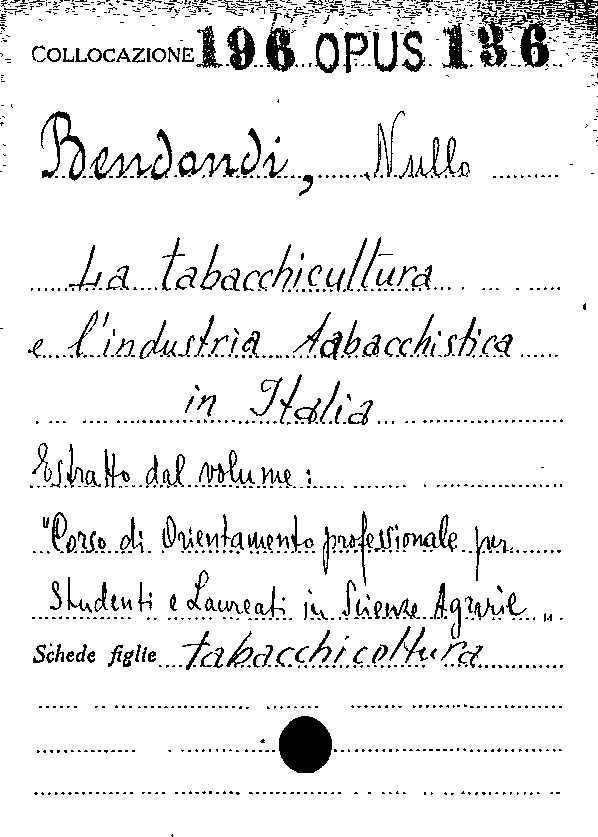 COLLOCAZIONE 196 OPUS 136
Bendandi, Nullo
La tabacchicultura
e l'industria tabacchistica
in Italia
Estratto dal volume:
"Corso di Orientamento professionale per
Studenti e Laureati in Scienze Agrarie"
Schede figlie tabacchicoltura